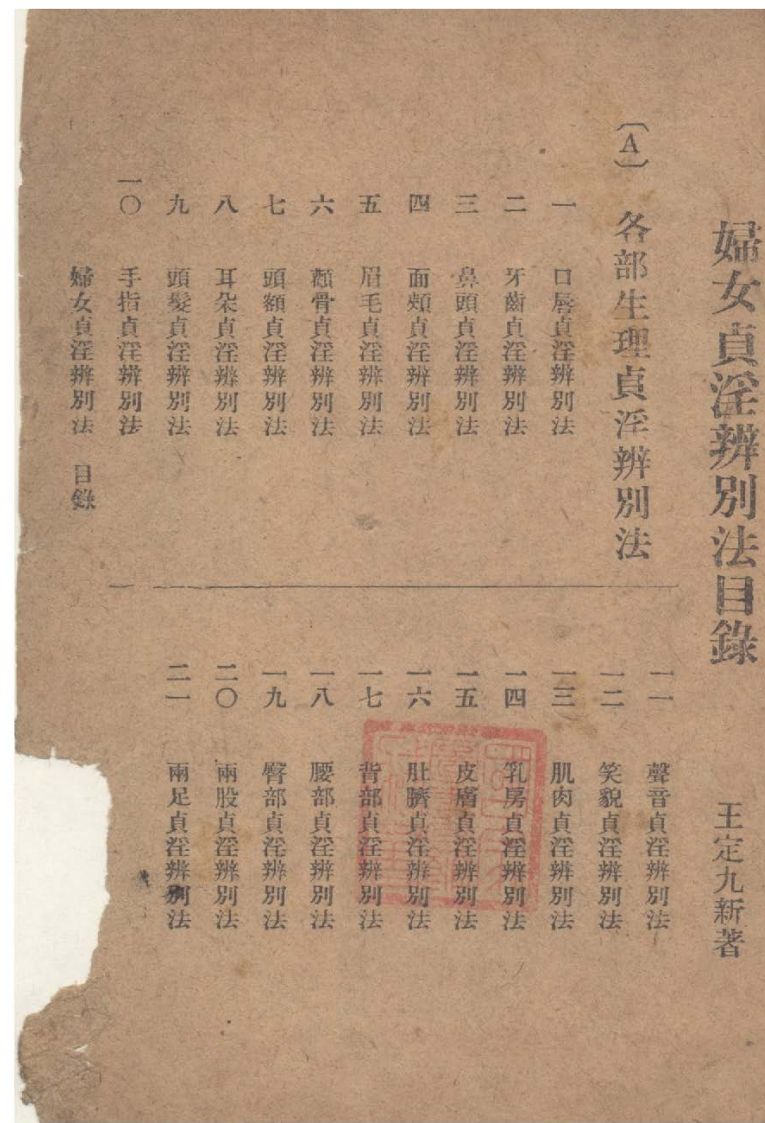 婦女貞淫辨別法目錄
王定九新著
〔A〕 各部生理貞淫辨別法
一 口唇貞淫辨別法
二 牙齒貞淫辨別法
三 鼻頭貞淫辨別法
四 面頰貞淫辨別法
五 眉毛貞淫辨別法
六 顴骨貞淫辨別法
七 頭額貞淫辨別法
八 耳朵貞淫辨別法
九 頭髮貞淫辨別法
一〇 手指貞淫辨別法
一一 聲音貞淫辨別法
一二 笑貌貞淫辨別法
一三 肌肉貞淫辨別法
一四 乳房貞淫辨別法
一五 皮膚貞淫辨別法
一六 肚臍貞淫辨別法
一七 背部貞淫辨別法
一八 腰部貞淫辨別法
一九 臀部貞淫辨別法
二〇 兩股貞淫辨別法
二一 兩足貞淫辨別法
婦女貞淫辨別法 目錄
一